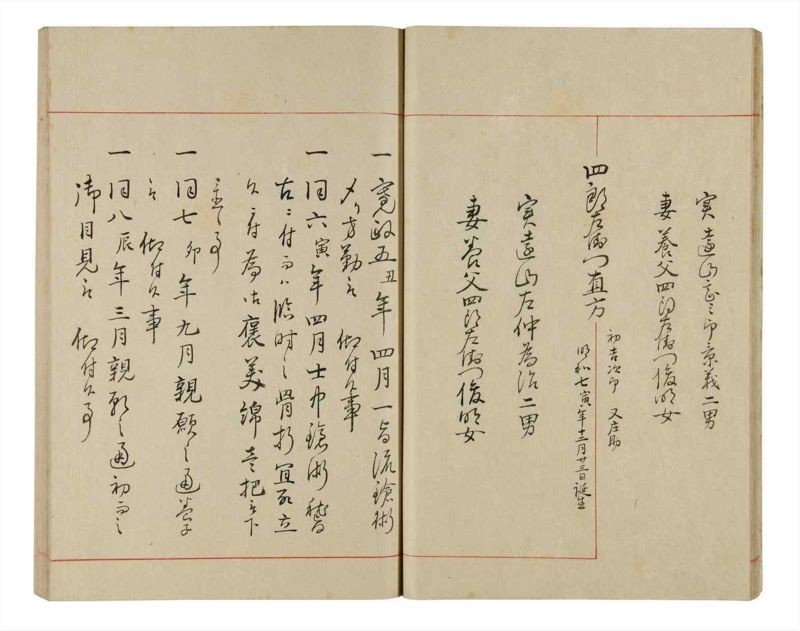 実遠山
景義二男
妻養父四郎左衛門俊明女
四郎左衛門直方
初吉次郎 又庄助
明和七寅年十二月廿三日誕生
実遠山左仲為治二男
妻養父四郎左衛門俊明女
一寛政五丑年四月一
流鎗術
方勤
被 仰付候事
一同六寅年四月士中鎗術稽
古ニ付而ハ臨時之骨折
立
候ニ付為御褒美綿壱把被下
一同七卯年九月親願之通養子
被 仰付候事
一同八辰年三月親願之通初而之
御目見被 仰付候事